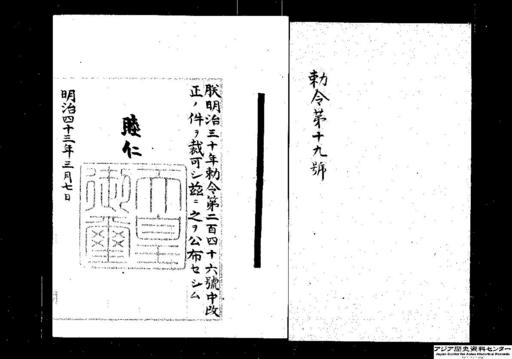 勅令第十九號
朕明治三十年勅令第二百四十六號中改
正ノ件ヲ裁可シ茲ニ之ヲ公布セシム
睦仁
天皇
御璽
明治四十三年三月七日
アジア歴史資料センター
Japan Center for Asian Historical Records